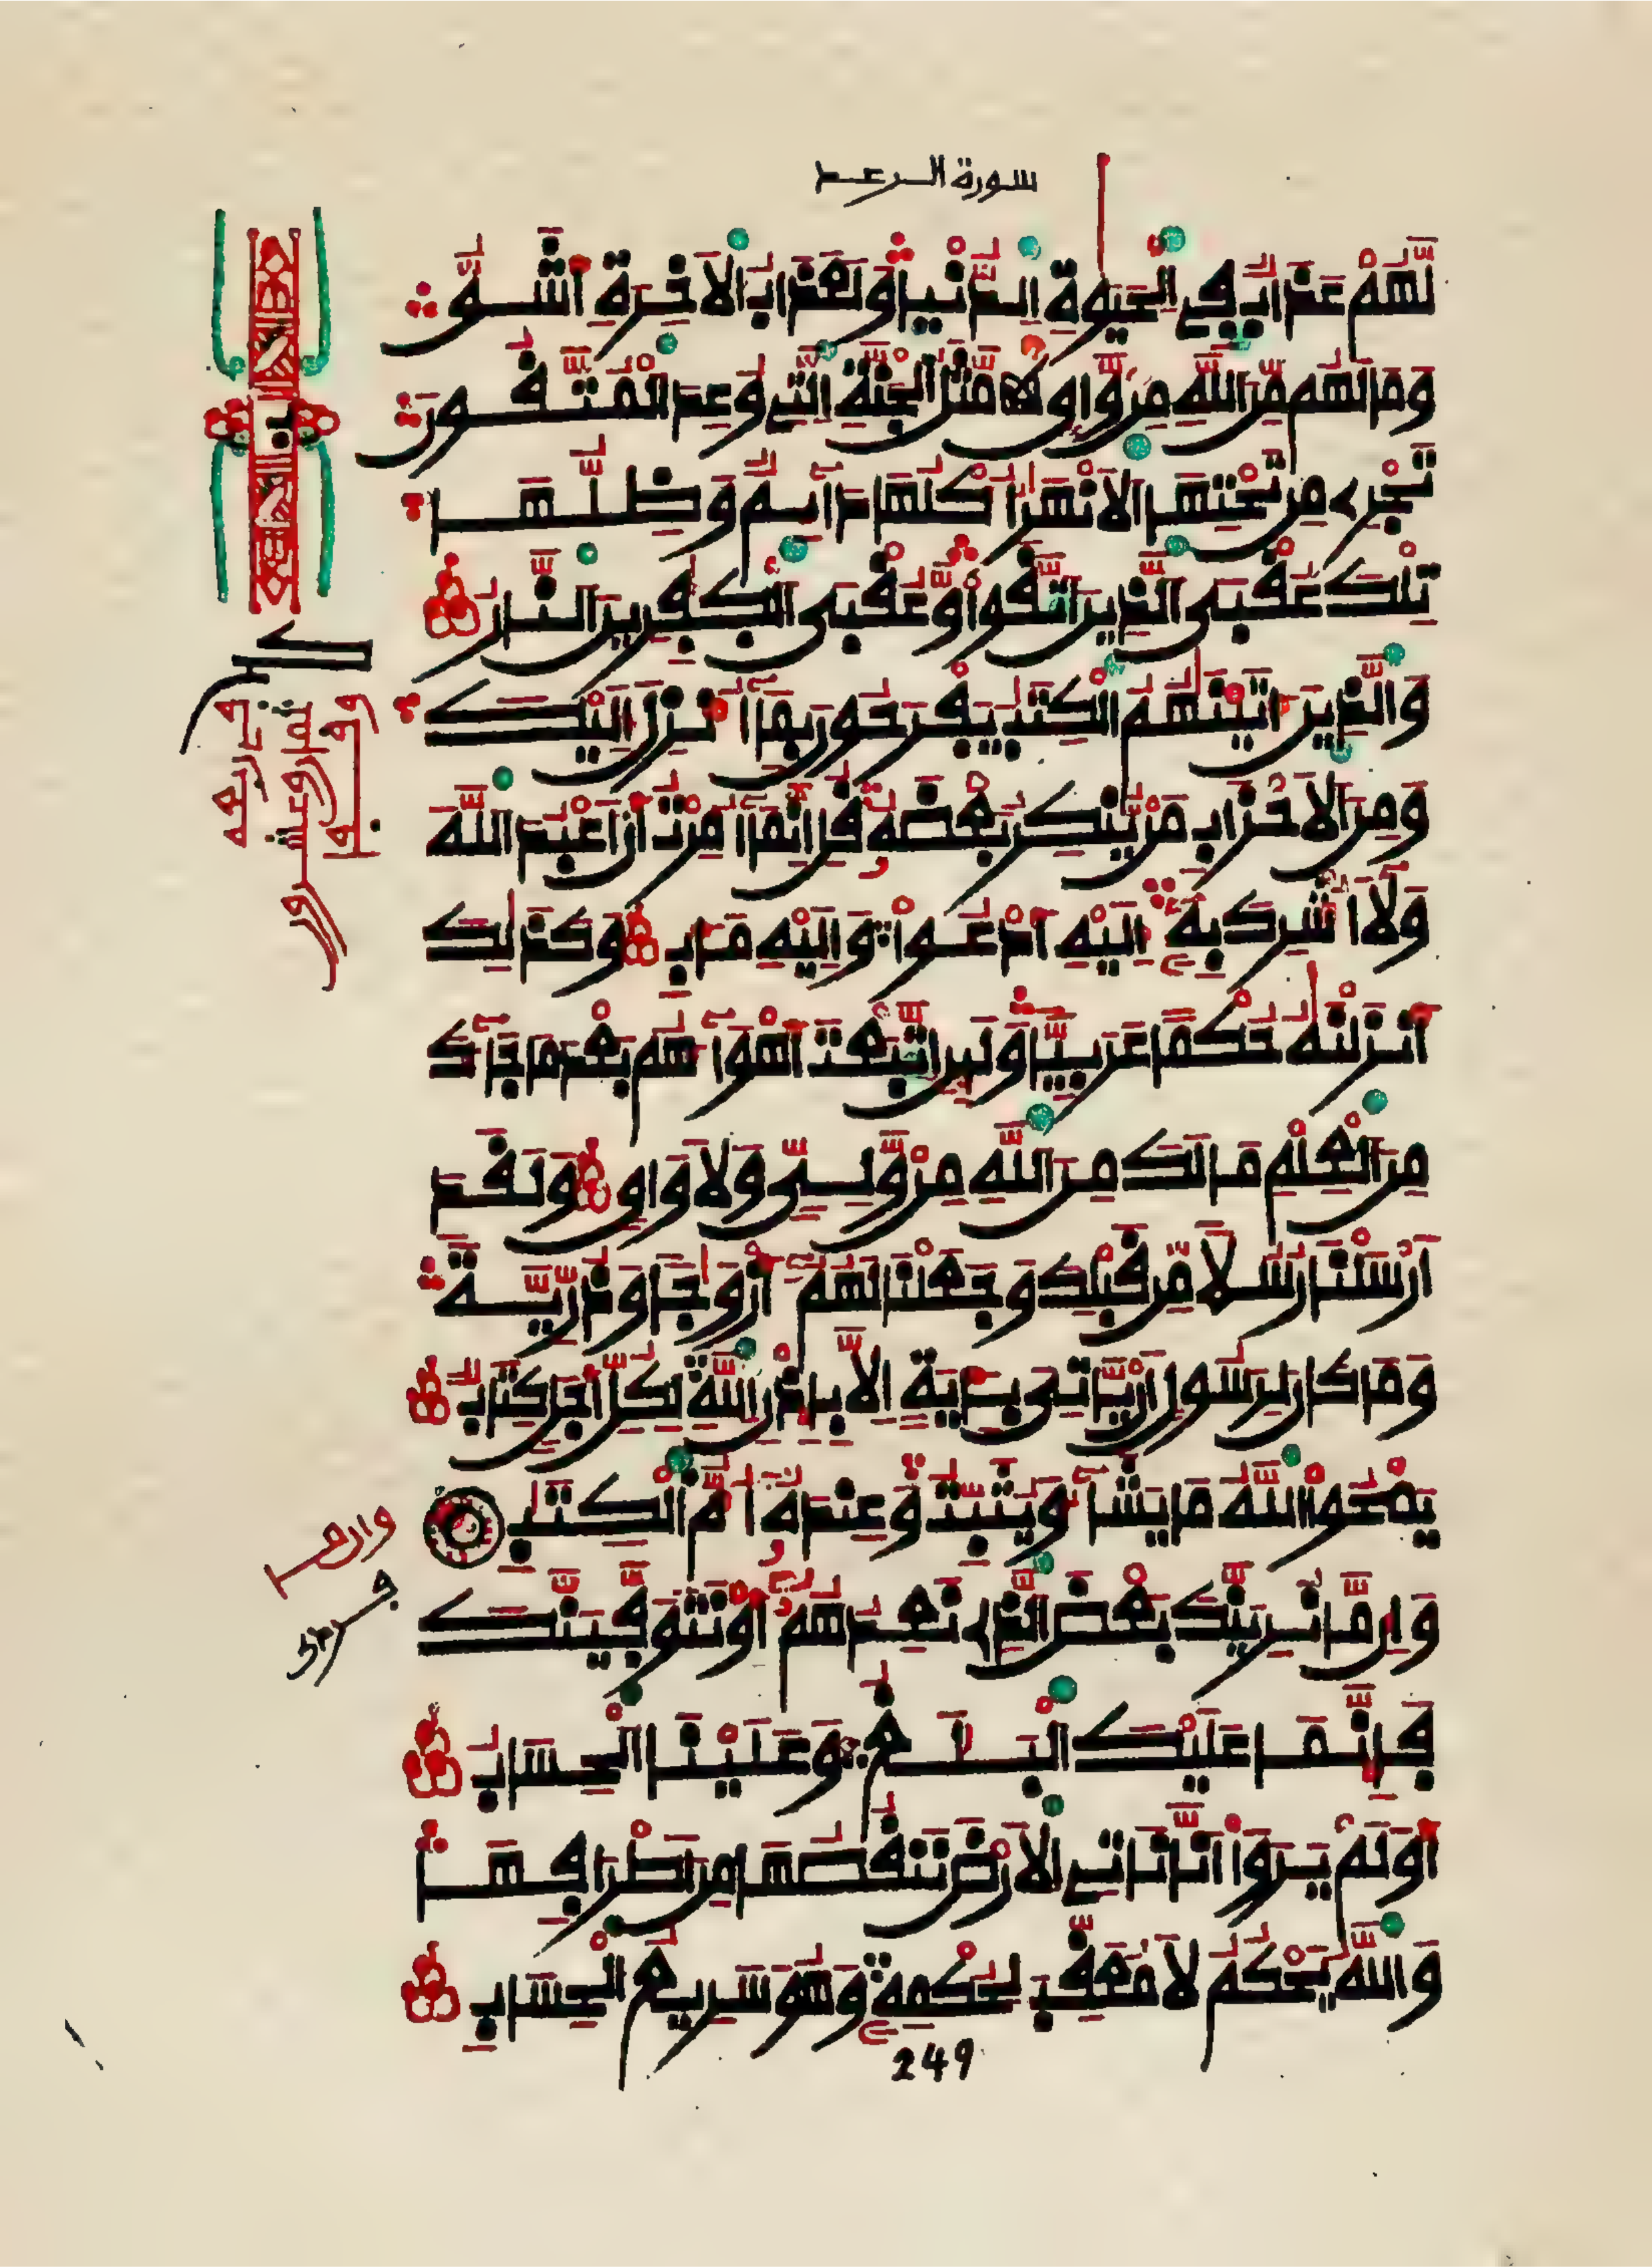 سورة الرعد
لَّهُمْ عَذَابٌ فِي الْحَيَوٰةِ الدُّنْيَا وَلَعَذَابُ الَاخِرَةِ أَشَقُّ
وَمَا لَهُم مِّنَ اللَّهِ مِنْ وَّاقٍ مَّثَلُ الْجَنَّةِ الَّتِي وُعِدَ الْمُتَّقُونَ
تَجْرِي مِن تَحْتِهَا الَانْهَٰرُ أُكْلُهَا دَآيِمٌ وَظِلُّهَا
تِلْكَ عُقْبَى الَّذِينَ اتَّقَواْ وَّعُقْبَى الْكَٰفِرِينَ النَّارُ
وَالَّذِينَ ءَاتَيْنَٰهُمُ الْكِتَٰبَ يَفْرَحُونَ بِمَآ أُنزِلَ إِلَيْكَ
وَمِنَ الَاحْزَابِ مَنْ يُّنكِرُ بَعْضَهُ قُلِ انَّمَآ أُمِرْتُ أَنَ اَعْبُدَ اللَّهَ
وَلَآ أُشْرِكَ بِهِ إِلَيْهِ أَدْعُواْ وَإِلَيْهِ مَـَٔابِ وَكَذَٰلِكَ
أَنزَلْنَٰهُ حُكْمًا عَرَبِيًّا وَلَئِنِ اتَّبَعْتَ أَهْوَآءَهُم بَعْدَ مَا جَآءَكَ
مِنَ الْعِلْمِ مَا لَكَ مِنَ اللَّهِ مِنْ وَّلِيٍّ وَلَا وَاقٍ وَلَقَدَ
اَرْسَلْنَا رُسُلًا مِّن قَبْلِكَ وَجَعَلْنَا لَهُمُ أَزْوَٰجًا وَذُرِّيَّةً
وَمَا كَانَ لِرَسُولٍ أَنْ يَّاتِيَ بِـَٔايَةٍ اِلَّا بِإِذْنِ اللَّهِ لِكُلِّ أَجَلٍ كِتَابٌ
يَمْحُواْ اللَّهُ مَا يَشَآءُ وَيُثَبِّتُ وَعِندَهُ أُمُّ الْكِتَٰبِ
وَإِن مَّا نُرِيَنَّكَ بَعْضَ الَّذِي نَعِدُهُمُ أَوْ نَتَوَفَّيَنَّكَ
فَإِنَّمَا عَلَيْكَ الْبَلَٰغُ وَعَلَيْنَا الْحِسَابُ
أَوَلَمْ يَرَوَاْ اَنَّا نَاتِي الَارْضَ نَنقُصُهَا مِنَ اَطْرَافِهَا
وَاللَّهُ يَحْكُمُ لَا مُعَقِّبَ لِحُكْمِهِ وَهُوَ سَرِيعُ الْحِسَابِ
249